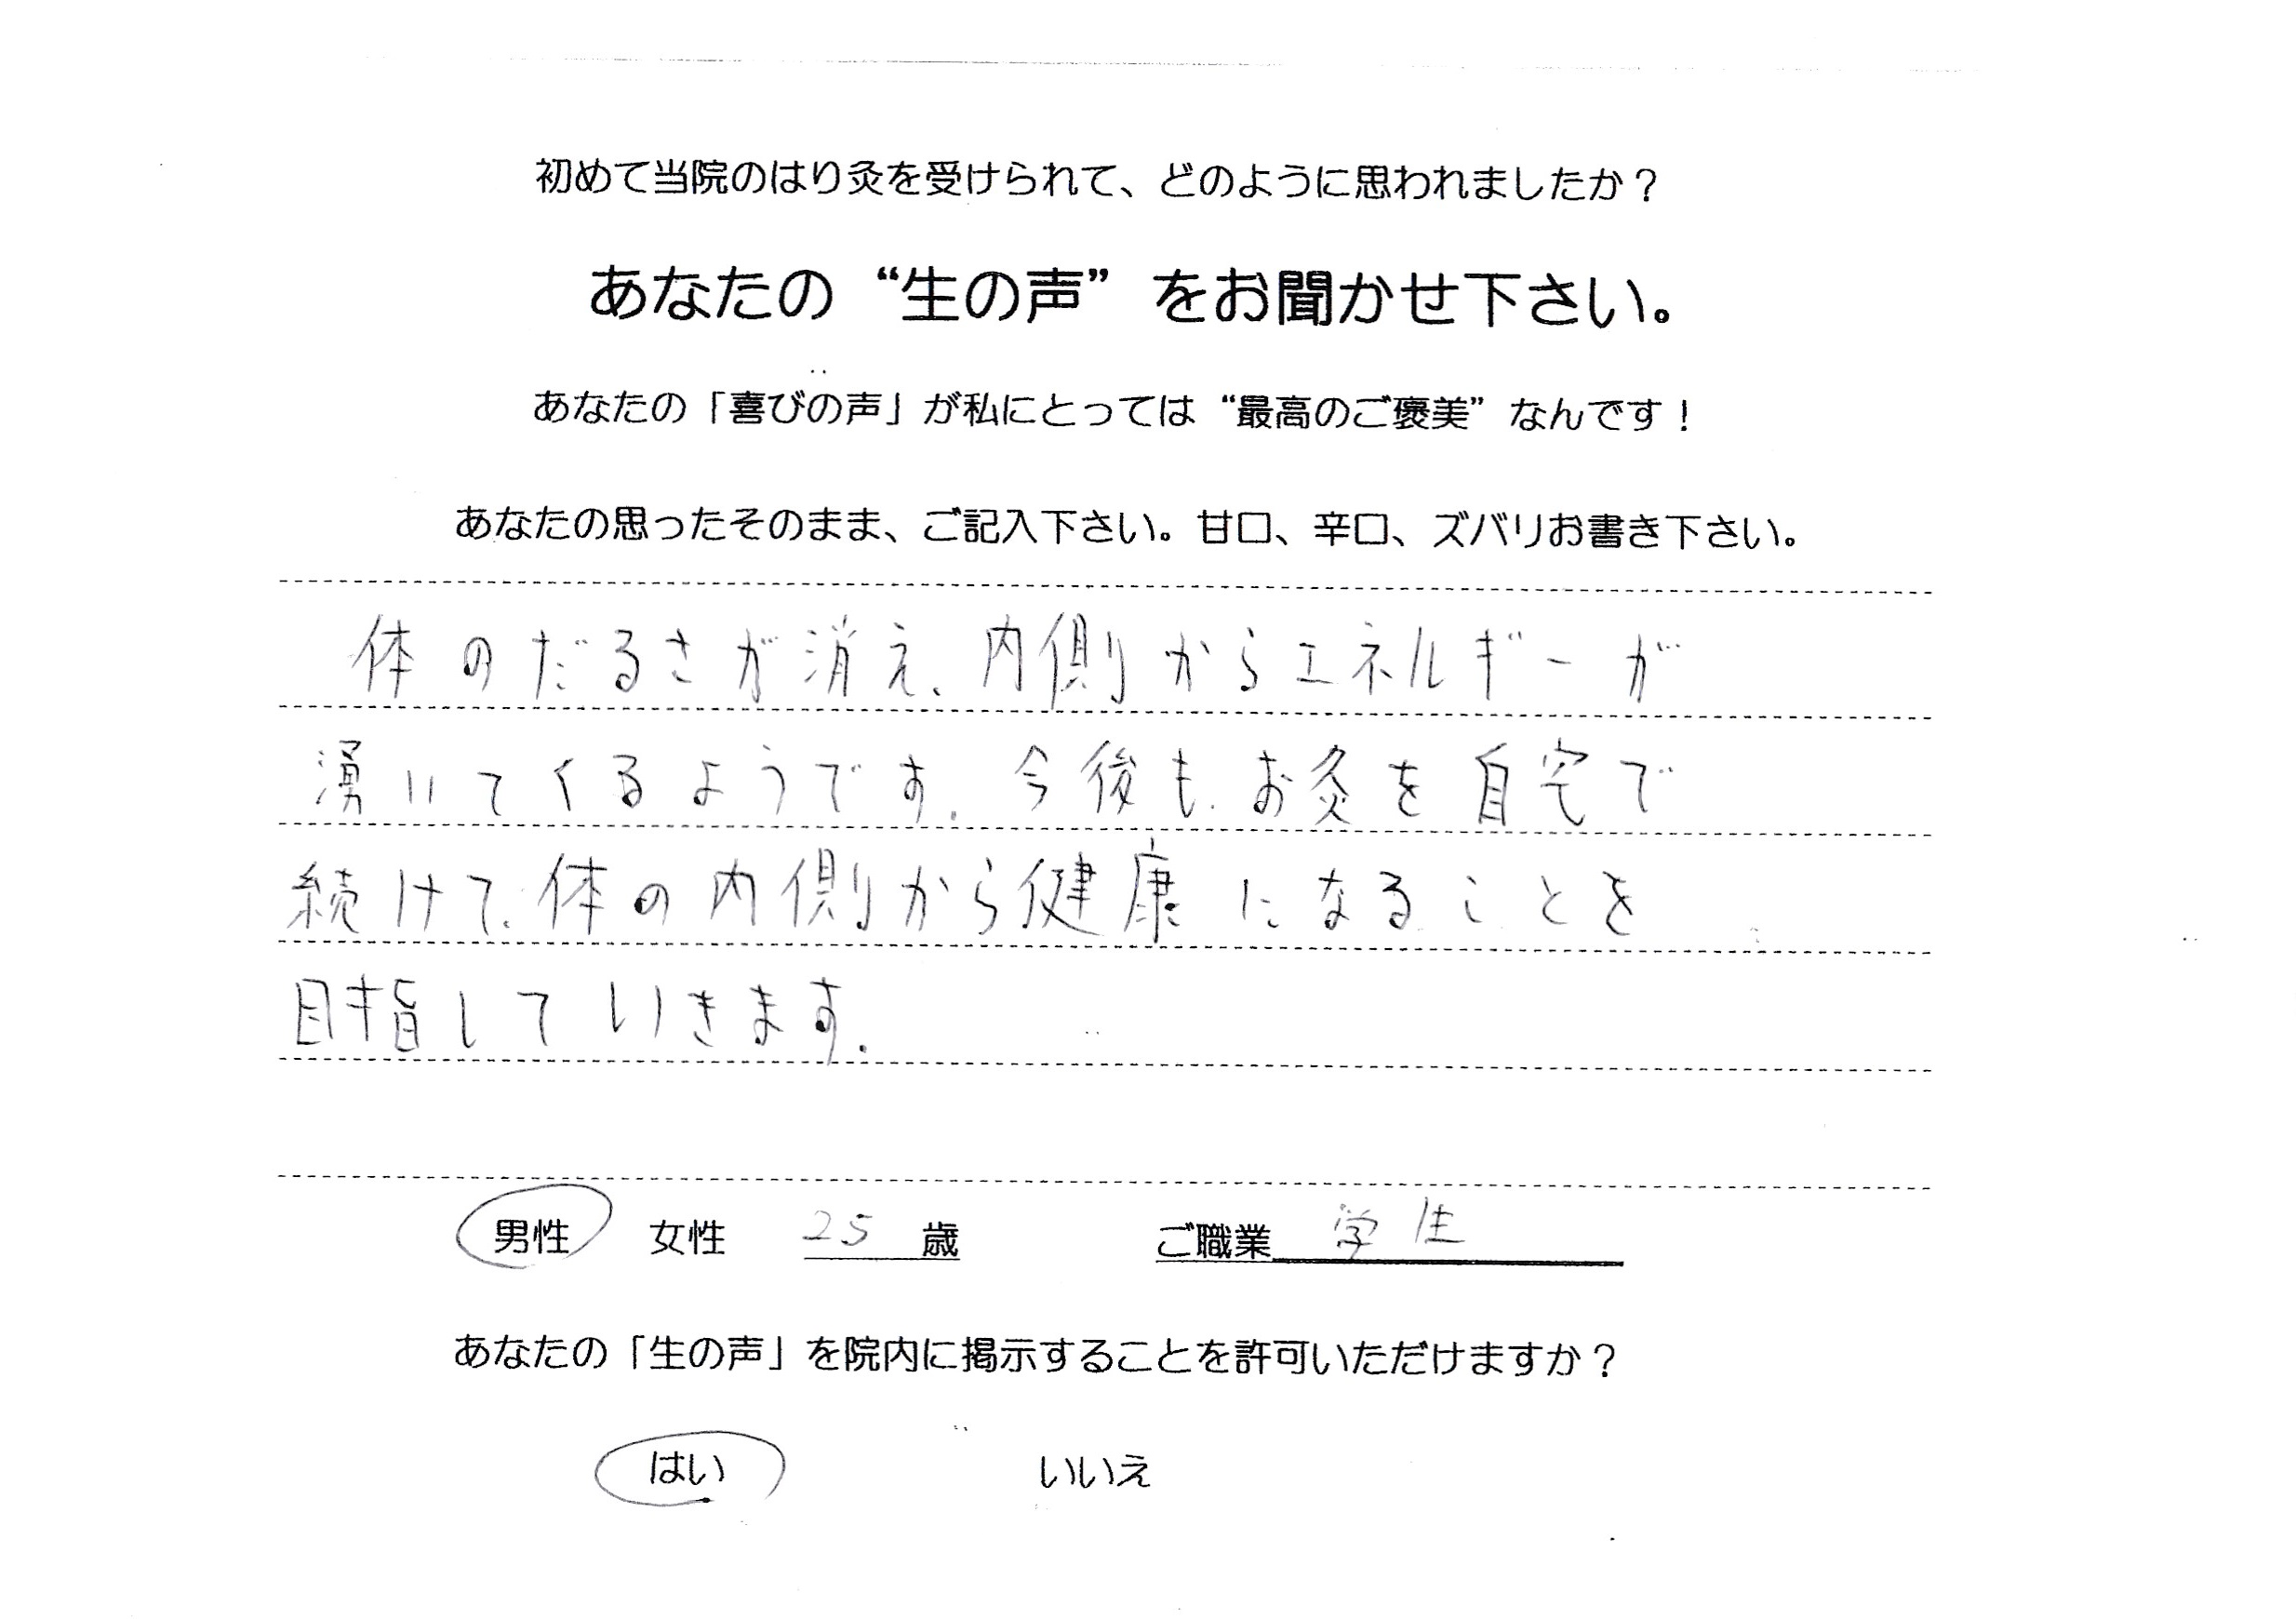 初めて当院のはり灸を受けられて、どのように思われましたか？
あなたの“生の声”をお聞かせ下さい。
あなたの「喜びの声」が私にとっては“最高のご褒美”なんです！
あなたの思ったそのまま、ご記入下さい。甘口、辛口、ズバリお書き下さい。
体のだるさが消え、内側からエネルギーが
湧いてくるようです。今後も、お灸を自宅で
続けて、体の内側から健康になることを
目指していきます。
男性 女性 25 歳 ご職業 学生
あなたの「生の声」を院内に掲示することを許可いただけますか？
はい いいえ